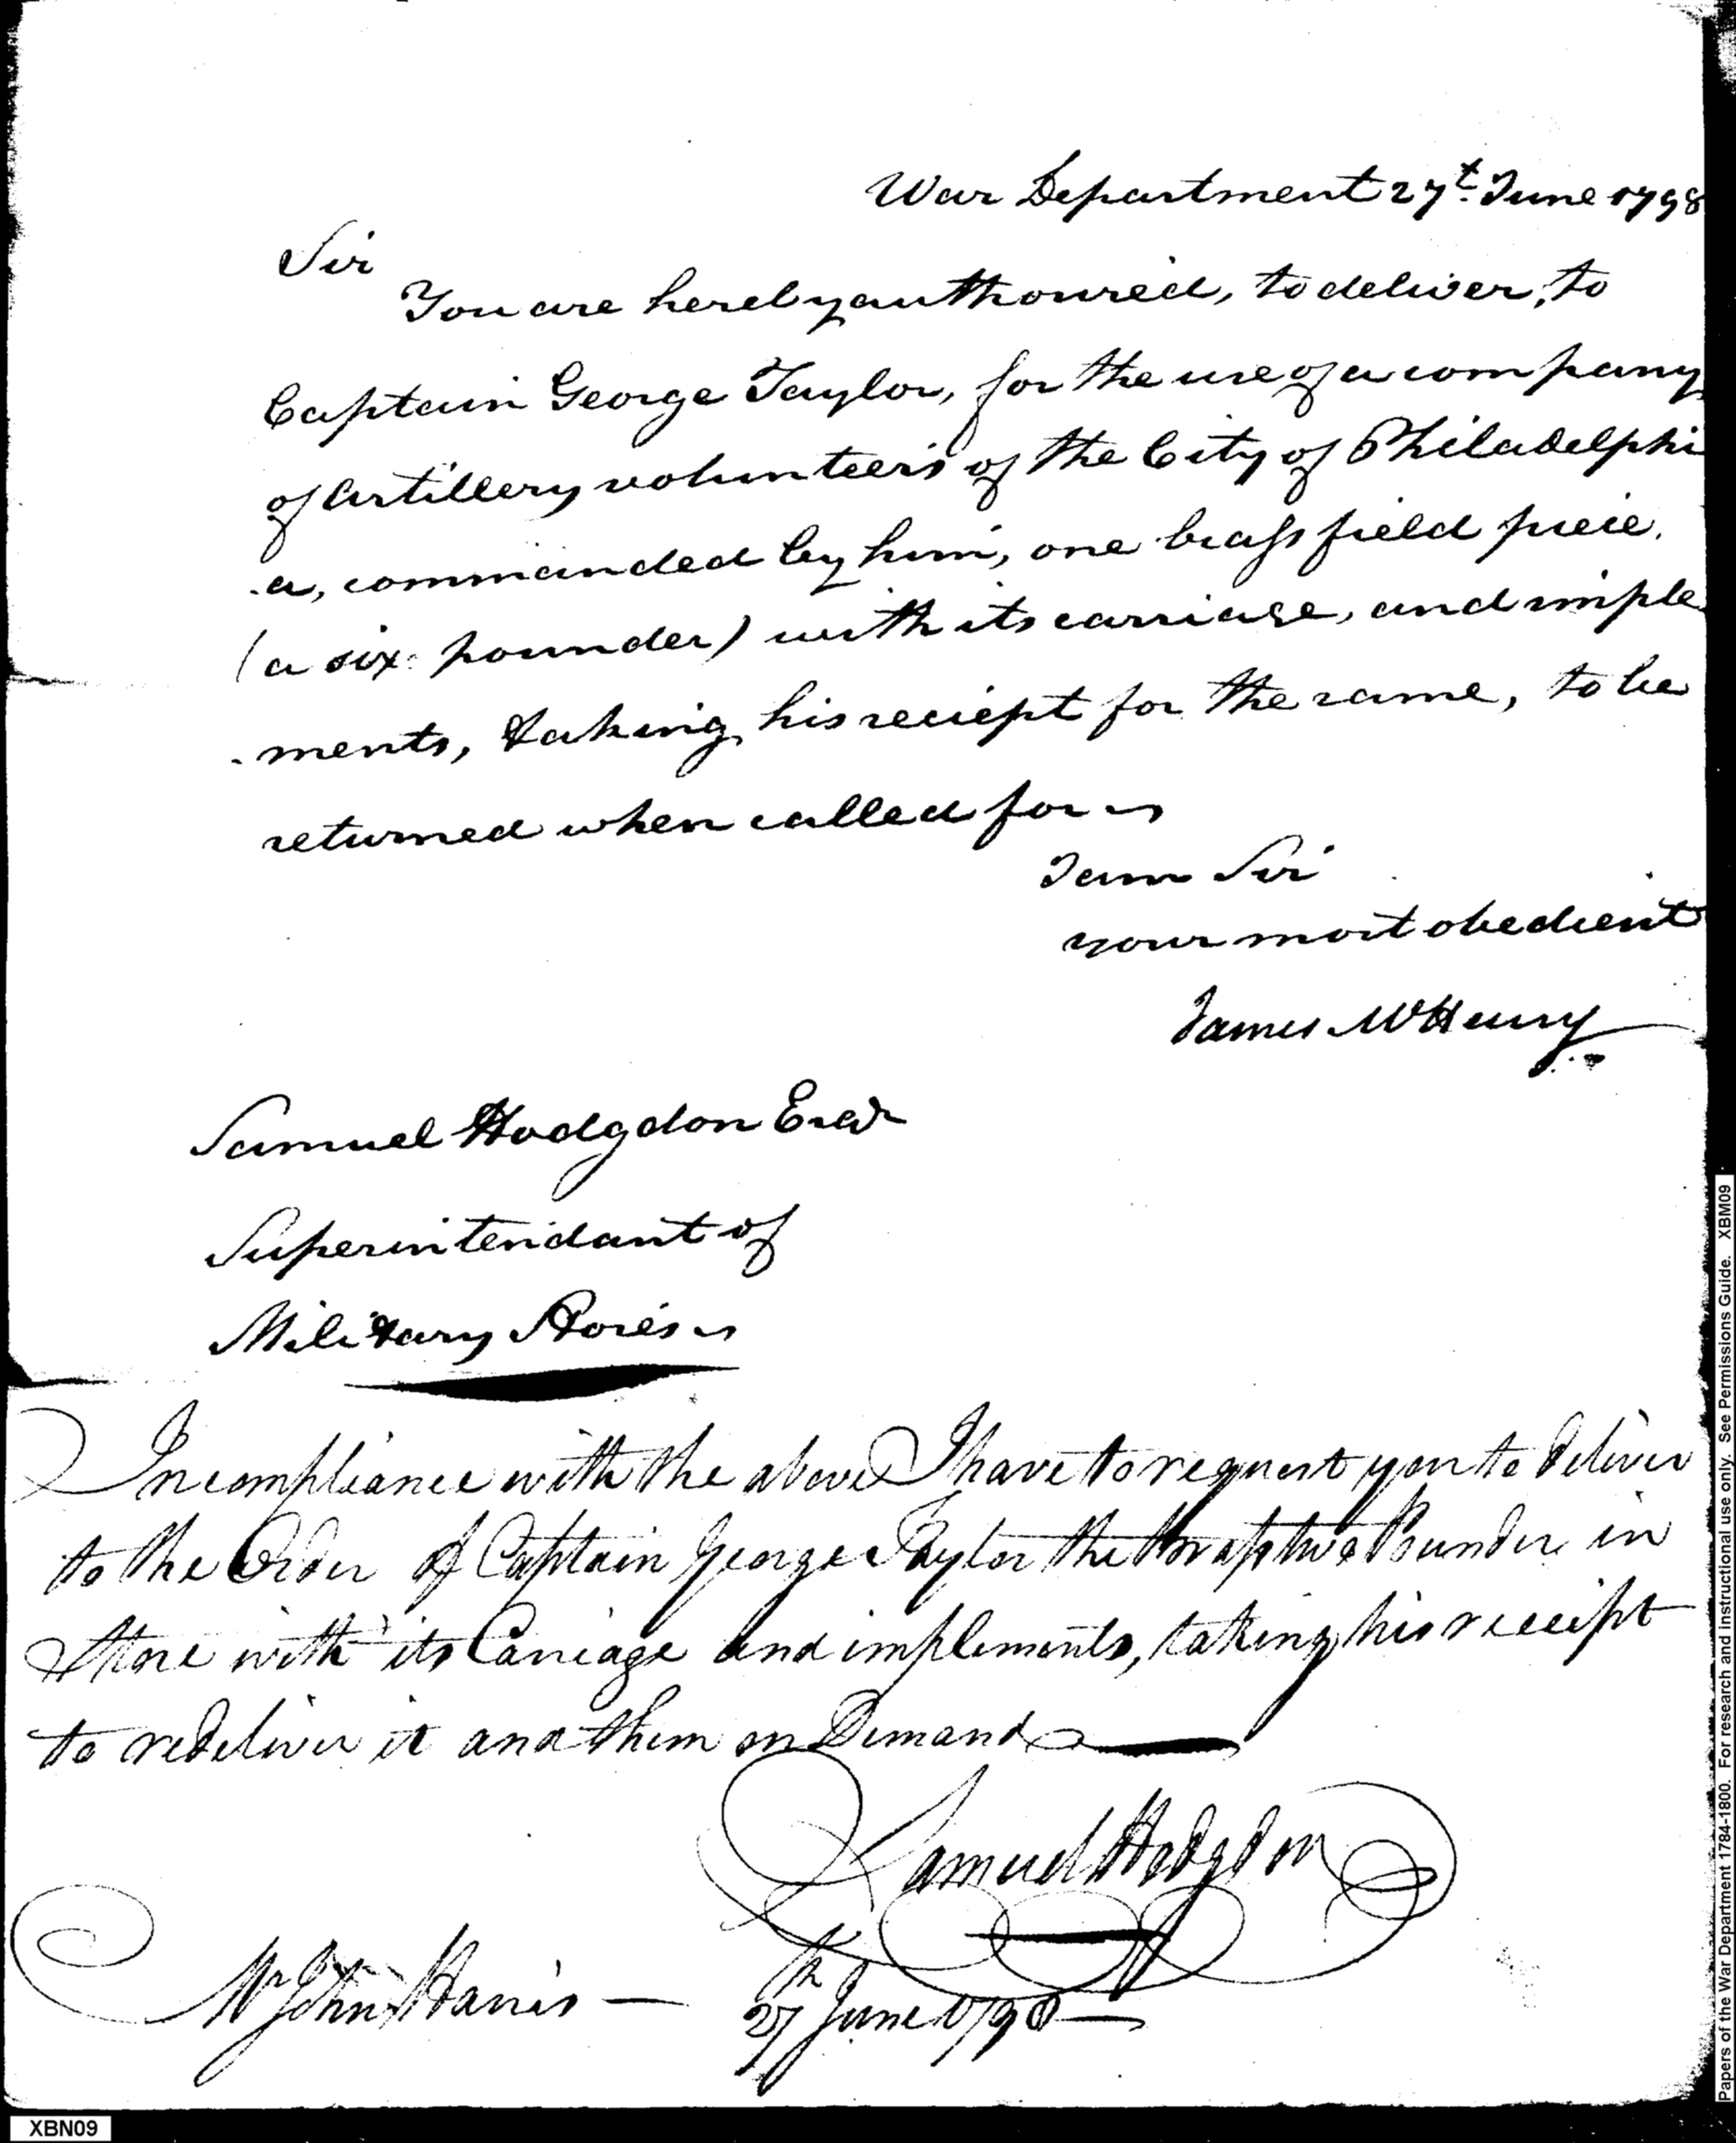 War Department 27t. June 1798
Sir
You are hereby authoused, to deliver, to
Captain George Taylor, for the use of a company
of artillery volunteers of the City of Philadelphi
-a, commanded by him, one brass field piece,
(a six pounder) with its carriage, and imple
-ments, taking his reciept for the same, to be
returned when called for
I am Sir
your most obedient
James McHenry
Samuel Hodgdon Esqr
Superintendant of
Military Stores
In compliance with the above I have to request you to deliver
to the Order of Captain George Taylor the brass two Pounder in
Store with its Carriage and implements, taking his receipt
to redeliver it and them on Demand
Samuel Hodgdon
Mr John Harris — 27th June 1798 —
XBN09
Papers of the War Department 1784-1800. For research and instructional use only. See Permissions Guide. XBM09